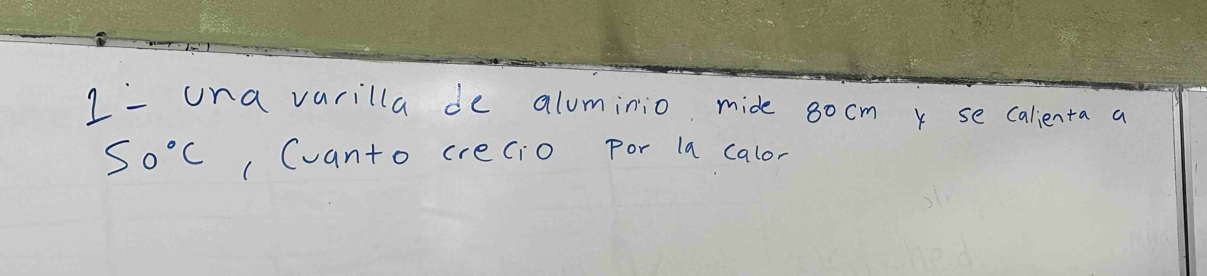 1- una varilla de aluminio mide 80 cm y se calienta a
50°C, Cuanto crecio por la calor